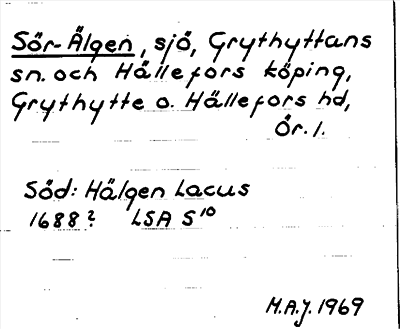 Sör-Älgen, sjö, Grythyttans
sn. och Hällefors köping,
Grythytte o. Hällefors hd,
Ör. l.
Söd: Hälgen Lacus
1688? LSA S¹⁰
M.A.J. 1969